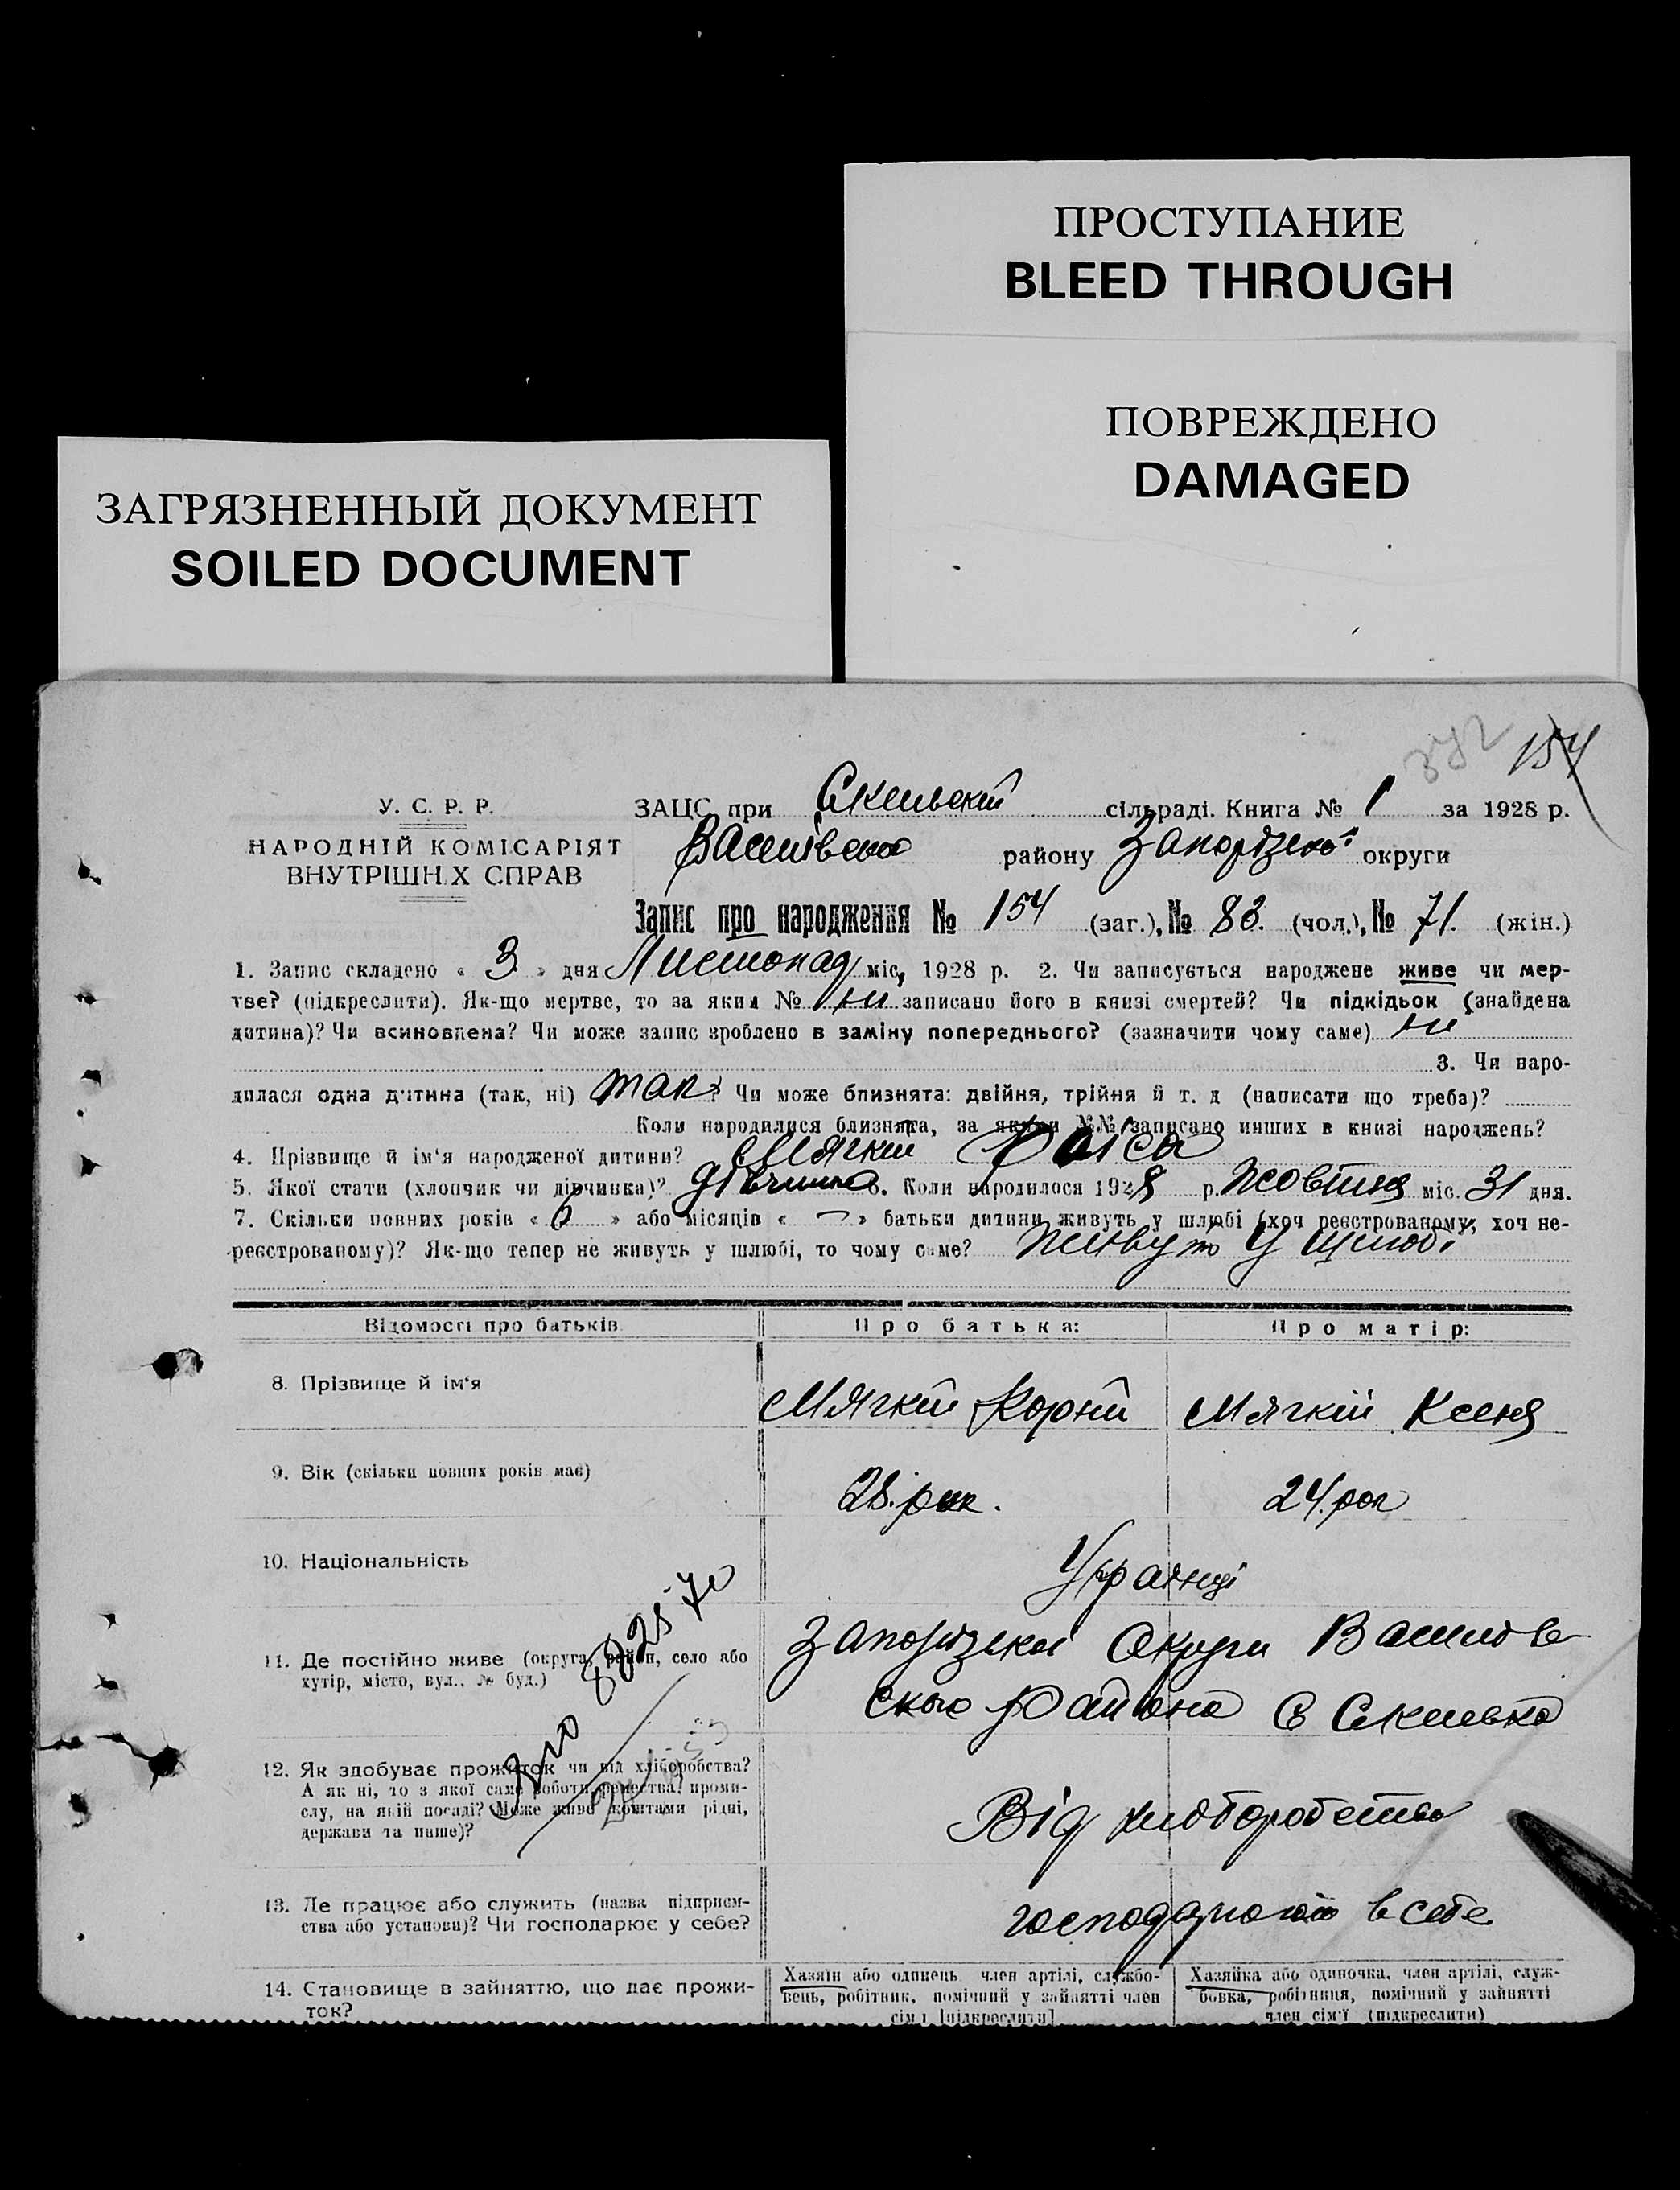 ПРОСТУПАНИЕ
BLEED THROUGH
ПОВРЕЖДЕНО
DAMAGED
ЗАГРЯЗНЕННЫЙ ДОКУМЕНТ
SOILED DOCUMENT
342 154
У. С. Р. Р.
НАРОДНІЙ КОМІСАРІЯТ
ВНУТРІШНІХ СПРАВ
ЗАЦС при Скельській сільраді. Книга № 1 за 1928 р.
району Запорізької округи
Запис про народження № 154 (заг.), № 83. (чол.), № 71. (жін.)
1. Запис складено « 3 » дня Листопад міс, 1928 р. 2. Чи записується народжене живе чи мер-
тве? (підкреслити). Як-що мертве, то за яким № ни записано його в книзі смертей? Чи підкідьок (знайдена
дитина)? Чи всиновлена? Чи може запис зроблено в заміну попереднього? (зазначити чому саме) ни
3. Чи наро-
дилася одна дитина (так, ні) так? Чи може близнята: двійня, трійня й т. д (написати що треба)?
Коли народилися близнята, за якими №№ записано инших в книзі народжень?
4. Прізвище й ім'я народженої дитини? Мягкий Раїса
5. Якої стати (хлопчик чи дівчинка)? дівчинка 6. Коли народилося 1928 р. Жовтня міс. 31 дня.
7. Скільки повних років « 6 » або місяців « — » батьки дитини живуть у шлюбі (хоч реєстрованому, хоч не-
реєстрованому)? Як-що тепер не живуть у шлюбі, то чому саме? Живуть у шлюбі
Відомості про батьків
Про батька:
Про матір:
8. Прізвище й ім'я
Мягкій Корній
Мягкій Ксеня
9. Вік (скільки повних років має)
28. рок.
24. рок
10. Національність
Українці
11. Де постійно живе (округа, район, село або
хутір, місто, вул., № буд.)
Запорізької Округи Василів
ського Района С Скелька
12. Як здобуває прожиток чи від хліборобства?
А як ні, то з якої саме роботи, ремества, проми-
слу, на якій посаді? Може живе коштами рідні,
держави та инше)?
Від хліборобства
13. Де працює або служить (назва підприєм-
ства або установи)? Чи господарює у себе?
в себе
14. Становище в зайняттю, що дає прожи-
ток?
Хазяїн або одинець, член артілі, службо-
вець, робітник, помічний у зайнятті член
сім'ї [підкреслити]
Хазяйка або одиночка, член артілі, служ-
бовка, робітниця, помічний у зайнятті
член сім'ї (підкреслити)